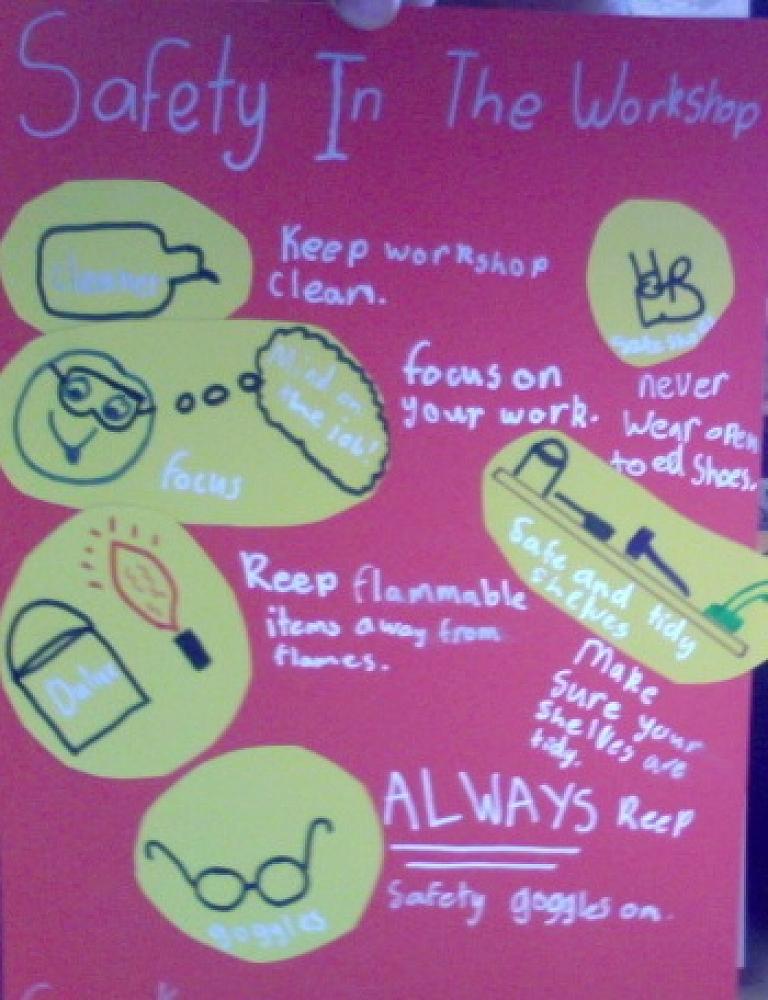 Safety In The Workshop
cleaner
Keep workshop
clean.
Mind on
the job!
focus
focus on
your work.
never
wear open
toed shoes.
Safe and tidy
shelves
Make
sure your
shelves are
tidy.
Keep flammable
items away from
flames.
Dulux
ALWAYS keep
safety goggles on.
goggles